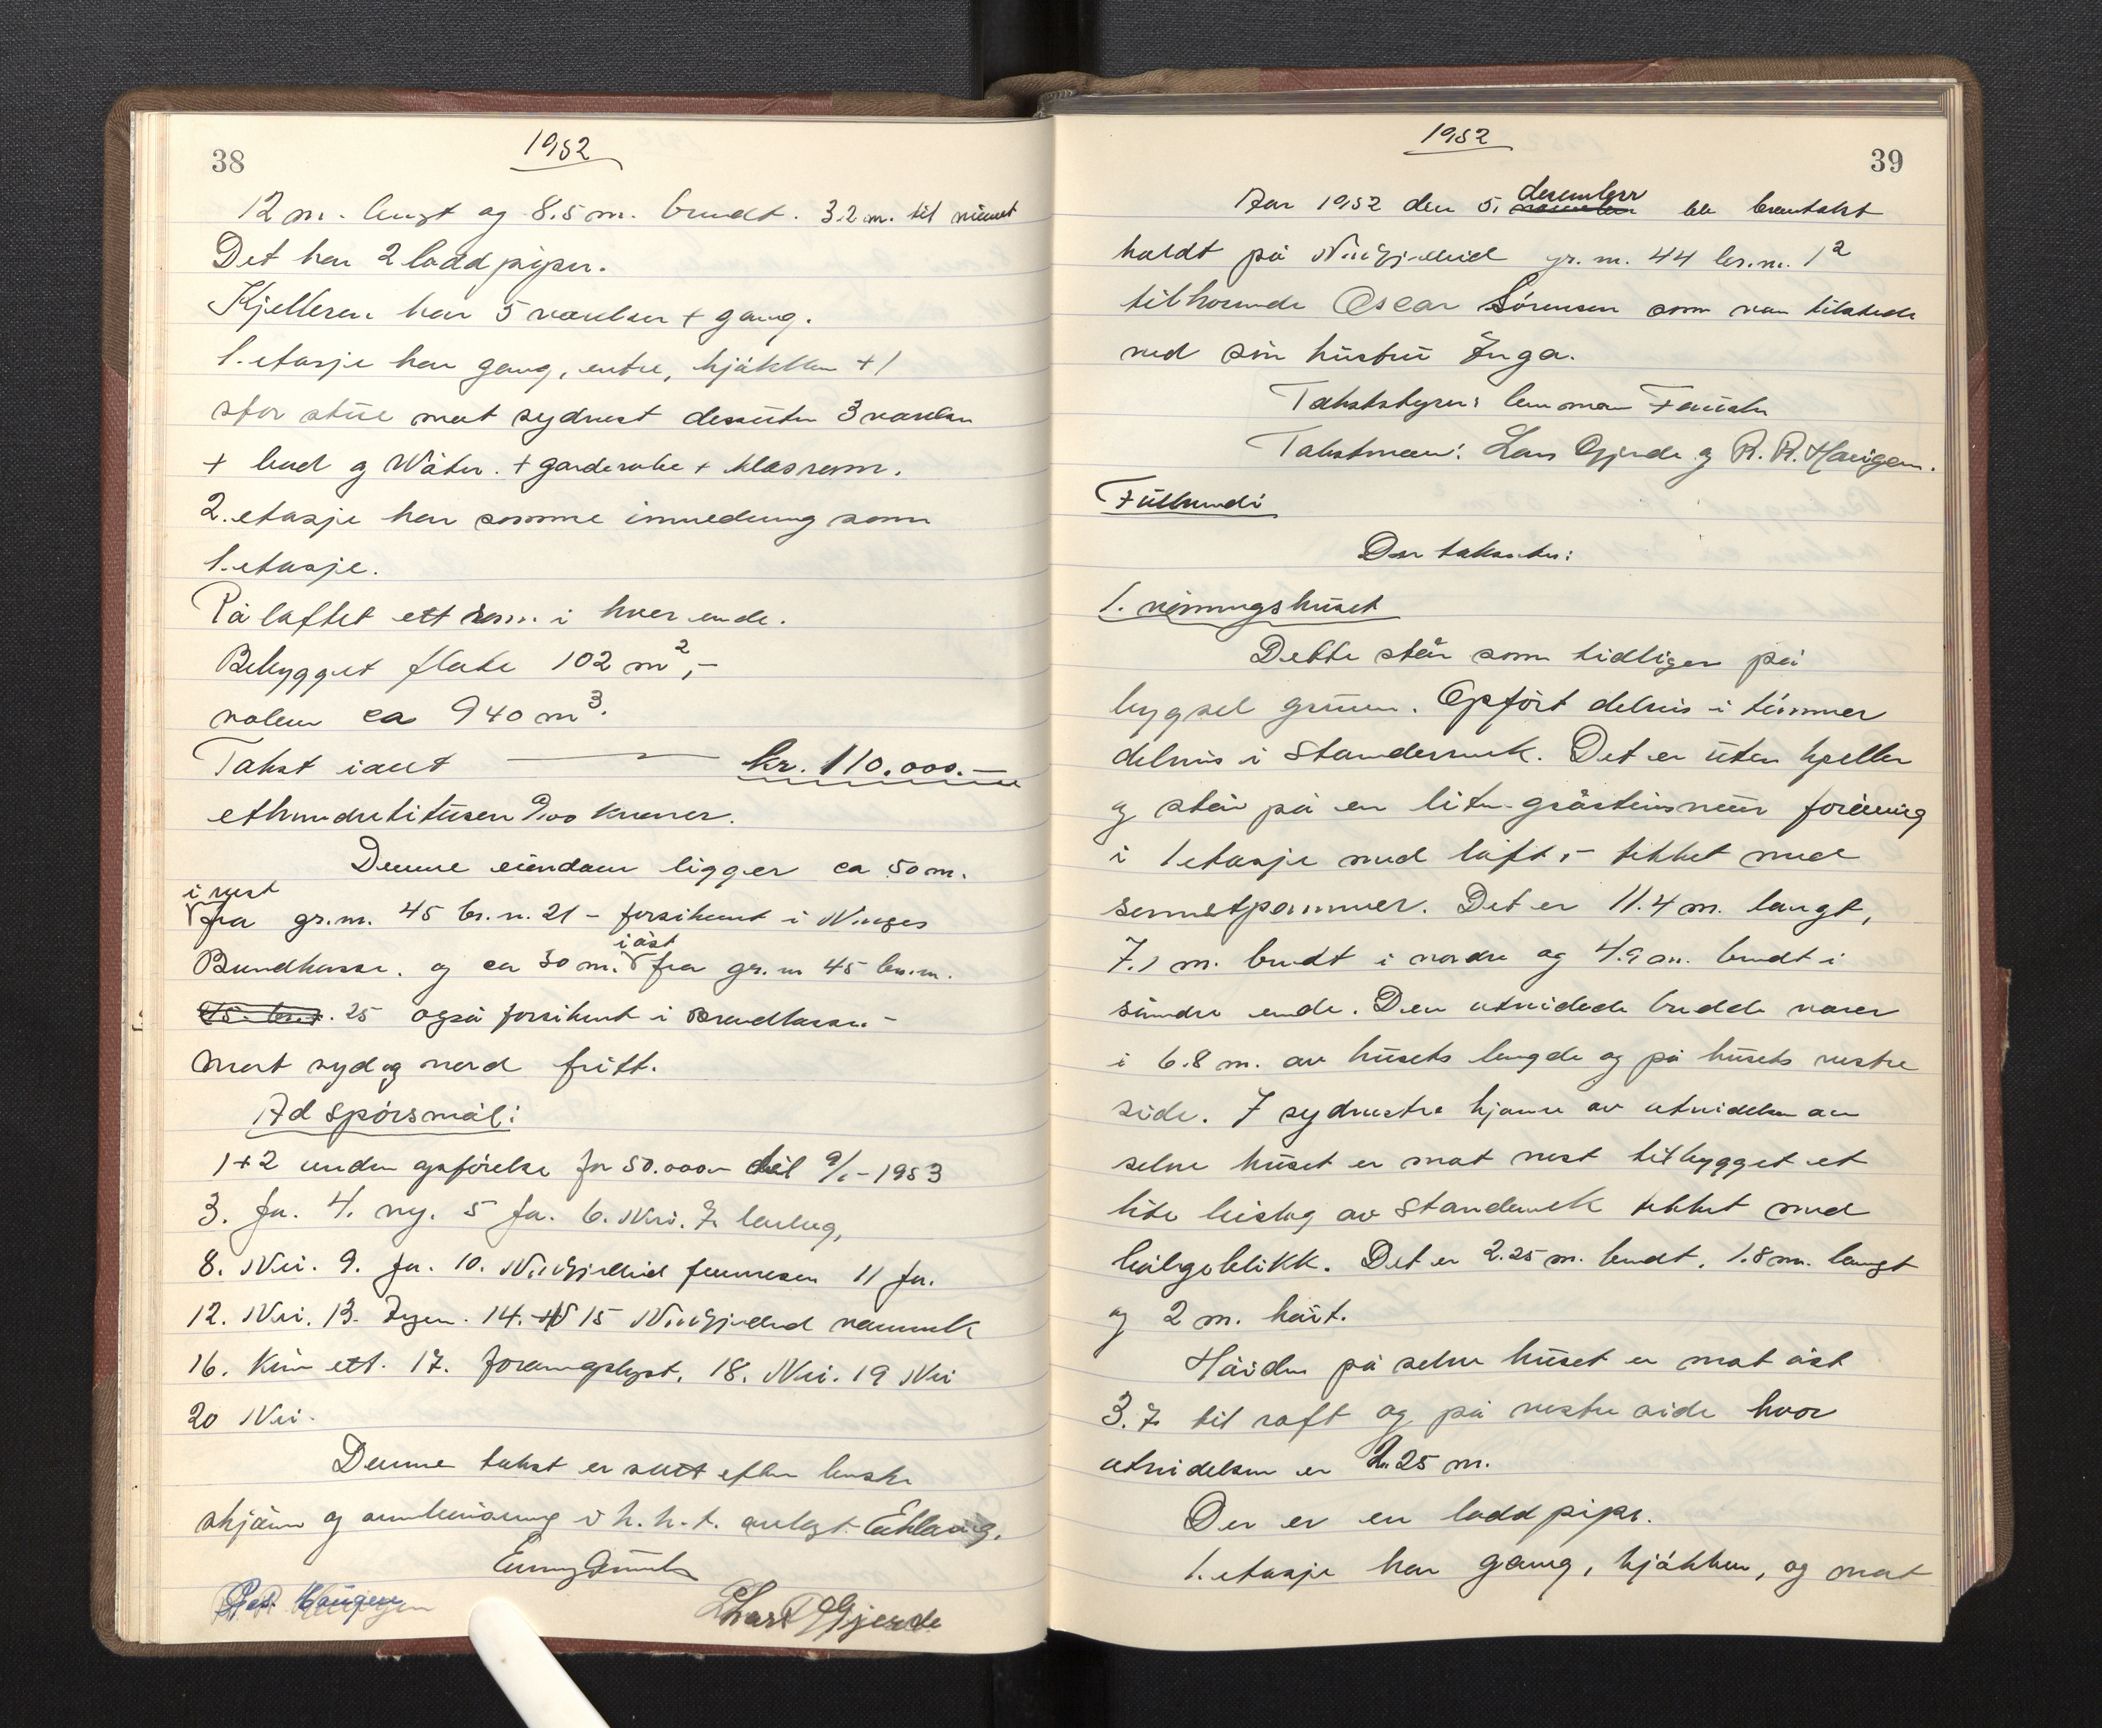 38
1952
12 m. langt og 8.5 m. bredt. 3.2 m. til mönet
Det har 2 lodd piper.
Kjelleren har 5 værelser + gang.
1. etasje har gang, entre, kjökken + 1
stor stue mot sydvest dessuten 3 værelser
+ bad og Water. + garderobe + klesrom.
2. etasje har samme innredning som
1. etasje.
På loftet ett rom i hver ende.
Bebygget flate 102 m²,-
volum ca 940 m³.
Takst ialt kr. 110.000.-
etthundretitusen 0/00 kroner.
Denne eiendom ligger ca 50 m.
i vest
fra gr.n. 45 br.n. 21 - forsikret i Norges
i öst
Brandkasse. og ca 30 m. fra gr.n 45 br.n.
25 også forsikret i Brandkassen -
Mot syd og nord fritt.
Ad Spörsmål:
1+2 under opförelse for 50.000.- til 9/1 - 1953
3. Ja. 4. ny. 5 Ja. 6. Nei. 7.
8. Nei. 9. Ja. 10. 11 Ja.
12. Nei. 13. Ingen. 14. 15
16. Kun ett. 17. 18. Nei. 19 Nei
20 Nei.
Denne takst er satt efter beste
skjönn og overbevisning i h. h. t. avlagt Erklæring.
Lars Gjerde
39
1952
desember
Aar 1952 den 5. november ble branntakst
holdt på gr. n. 44 br.n. 1²
tilhörende Oscar Sörensen som var tilstede
med sin hustru Inga.
Takststyrer: lensman
Takstmenn: Lars Gjerde og R. R. Haugen.
Der takseres:
1. våningshuset
Dette står som tidligere på
bygsel grunn. Opfört delvis i tömmer
delvis i Standerverk. Det er uten kjeller
og står på en liten gråsteinsmur forövrig
i 1 etasje med loft, - tekket med
sementpanner. Det er 11.4 m. langt,
7.1 m. bredt i nordre og 4.9 m. bredt i
söndre ende. Den utvidede bredde varer
i 6.8 m. av husets lengde og på husets vestre
side. I sydvestre hjörne av utvidelsen av
selve huset er mot vest tilbygget et
lite bislag av Standerverk tekket med
bölgeblikk. Det er 2.25 m. bredt, 1.8 m. langt
og 2 m. höit.
Höiden på selve huset er mot öst
3.7 til raft og på vestre side hvor
utvidelsen er 2.25 m.
Der er en lodd pipe.
1. etasje har gang, kjökken, og mot